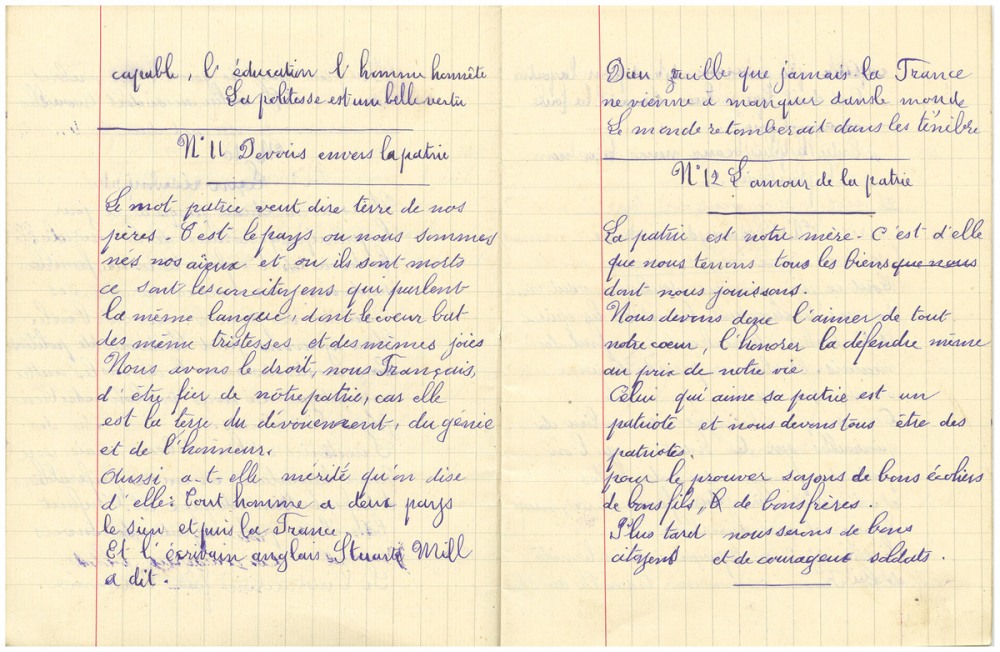 capable, l' éducation l' homme honnête
La politesse est une belle vertu
N° 11 Devoirs envers la patrie
Le mot patrie veut dire terre de nos
pères. C'est le pays ou nous sommes
nés nos aïeux et ou ils sont morts
ce sont les concitoyens qui parlent
la même langue, dont le coeur but
des même tristesses et des mêmes joies
Nous avons le droit, nous Français,
d' être fier de nôtre patrie, car elle
est la terre du dévouement, du génie
et de l'honneur.
Aussi a-t-elle mérité qu'on dise
d'elle: Tout homme a deux pays
le sien et puis la France
Et l'écrivain anglais Stuart Mill
a dit.
Dieu veuille que jamais la France
ne vienne a manquer dans le monde
Le monde retomberait dans les ténibre
N° 12 L'amour de la patrie
La patrie est notre mère. C'est d'elle
que nous tenons tous les biens que nous
dont nous jouissons.
Nous devons donc l'aimer de tout
notre coeur, l'honorer la défendre même
au prix de notre vie
Celui qui aime sa patrie est un
patriote et nous devons tous être des
patriotes.
pour le prouver soyons de bons écoliers
de bons fils, & de bons frères.
Plus tard nous serons de bons
citoyens et de courageux soldats.